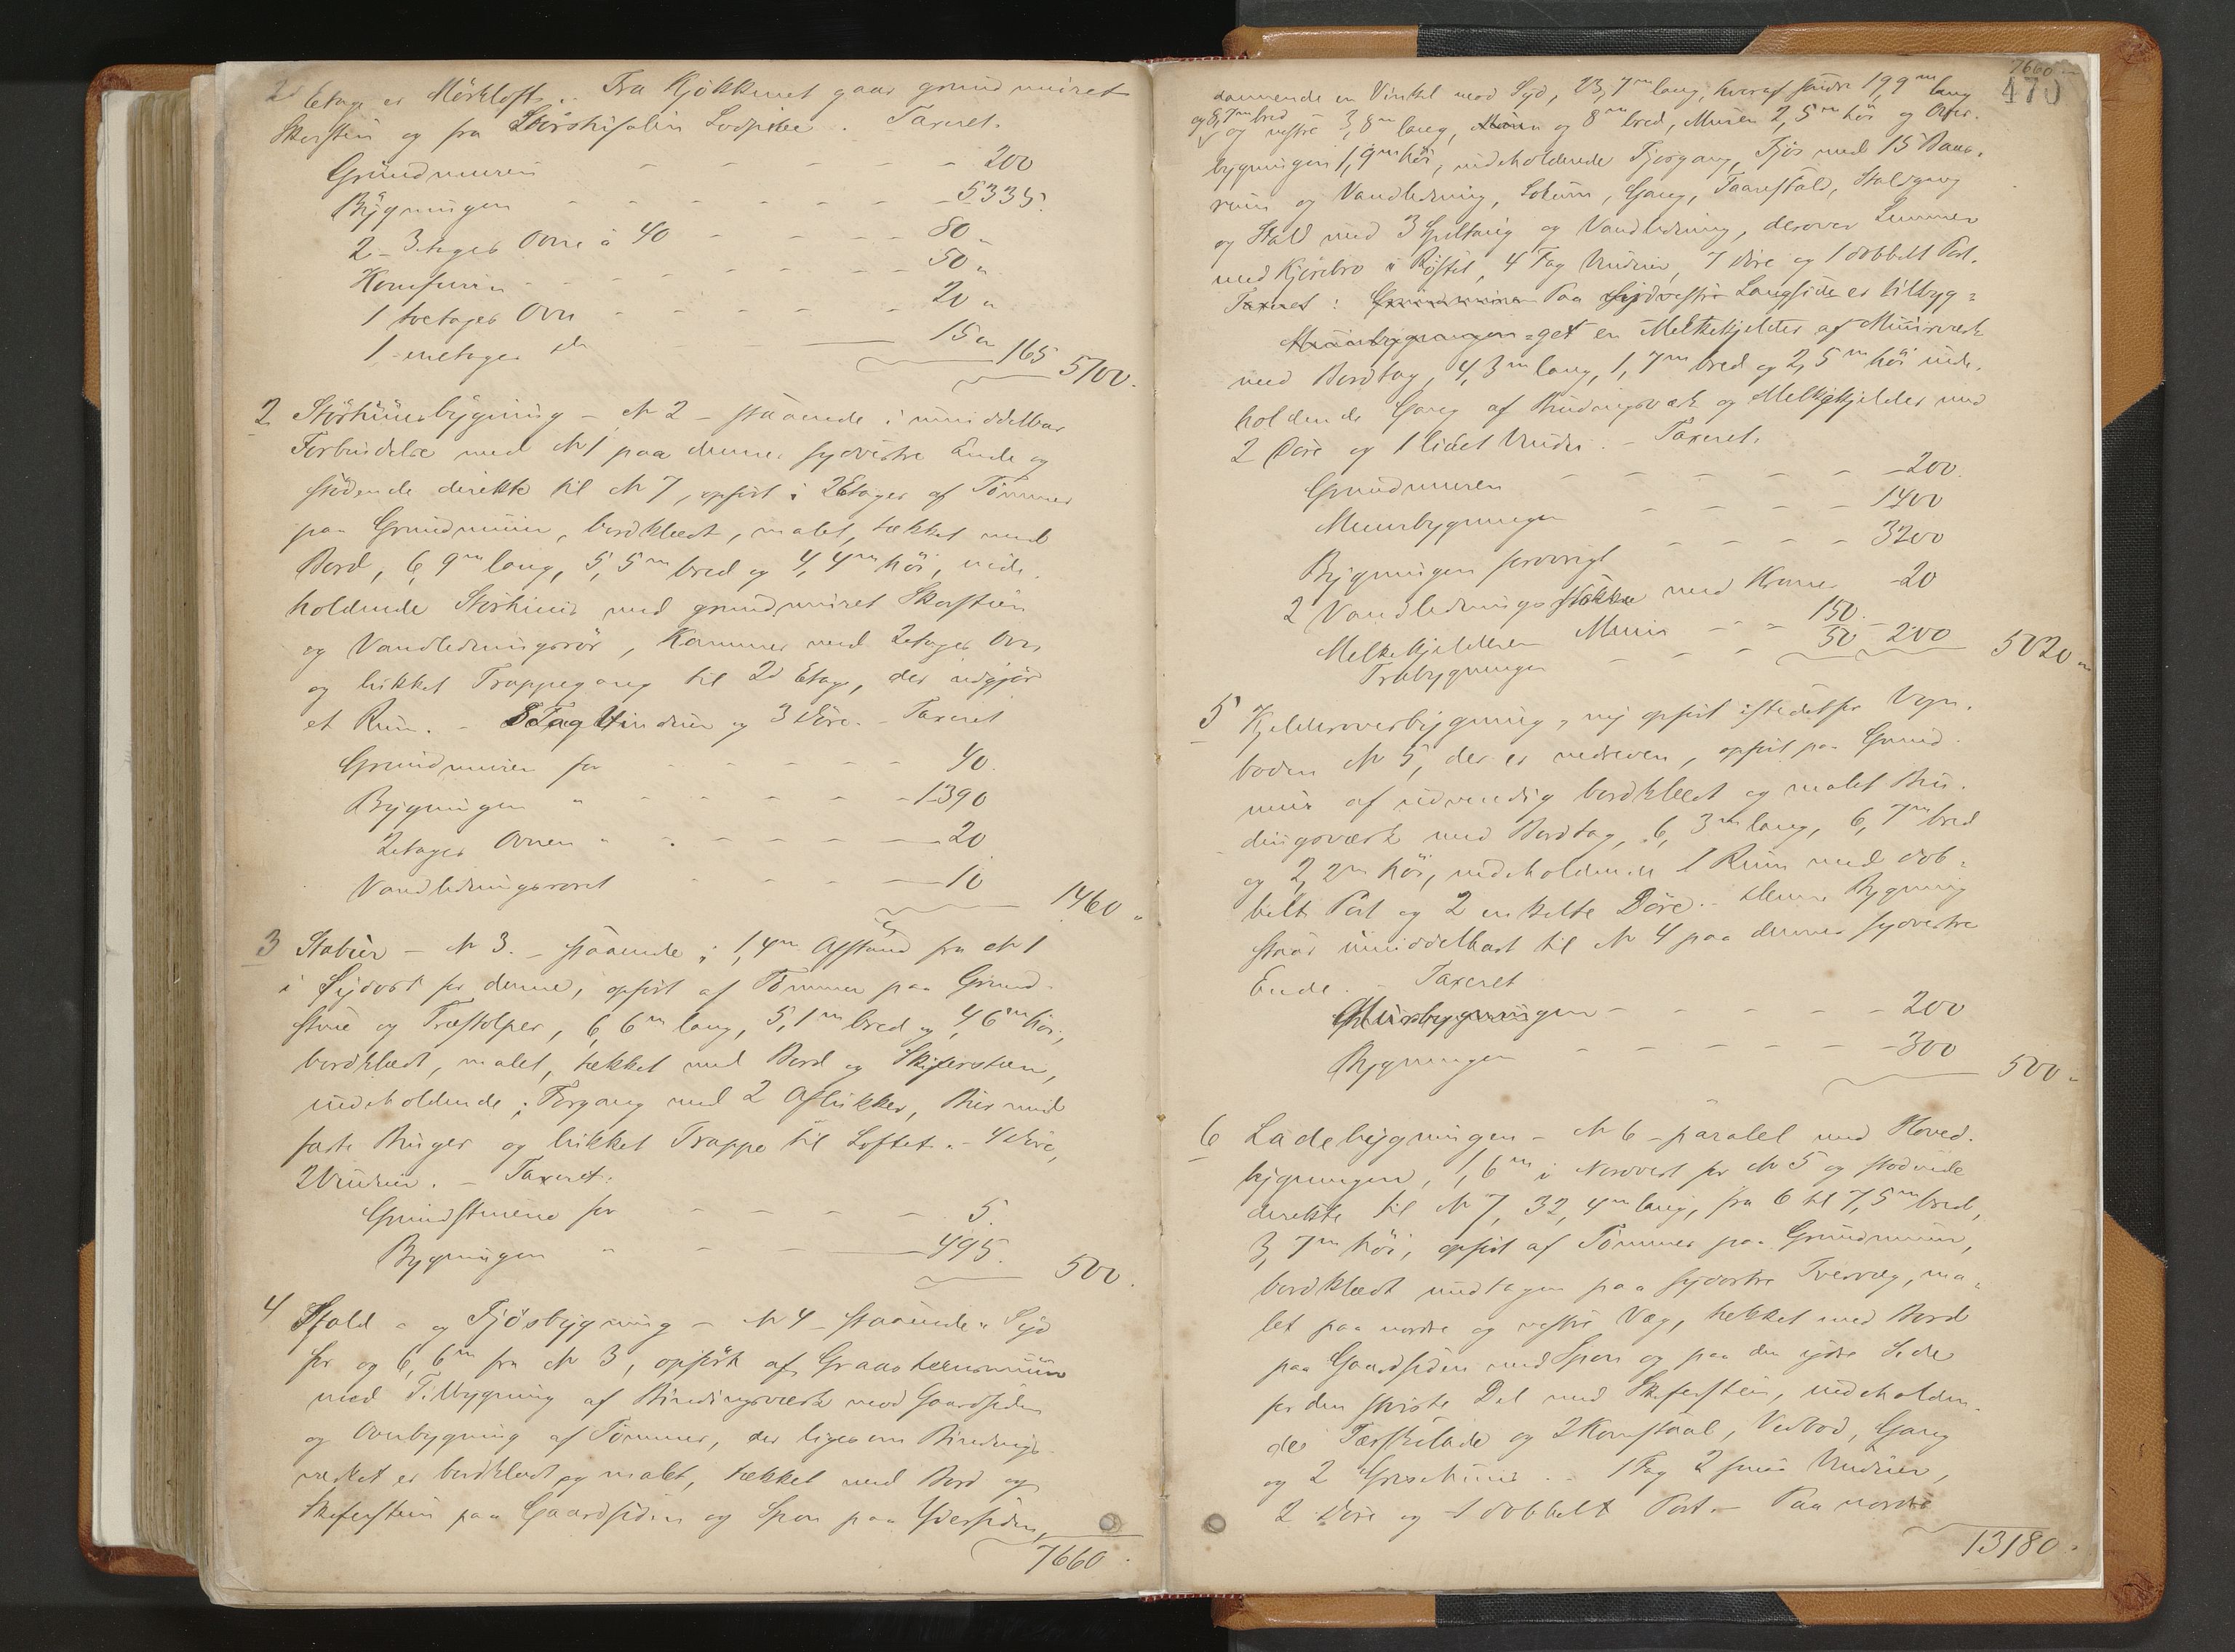 2d Etage er Mörkloft. Fra Kjökkenet gaar grundmuret
Skorsten og fra Lodpibe. Taxeret.
Grundmuren — 200
Bygningen — 5335.
2 – 3 etages Ovne à 40 — 80 "
Komfuren — 50 "
1 toetages Ovn — 20 "
1 – enetages do — 15 " 165 5700.
2 Störhüusbygning – No 2 – staaende i umiddelbar
Forbindelse med No 1 paa dennes sydvestre Ende og
stödende direkte til No 7, opfört i 2 Etager af Tömmer
paa Grundmuur, bordklædt, malet, tækket med
Bord, 6,9 m lang, 5,5 m bred og 4,4 m höi, inde-
holdende Störhuus med grundmuret Skorsten
og Vandledningsrör, Kammer med 2etages Ovn
og lukket Trappegang til 2d Etage, der udgjör
et Rum. – 8 Fag Vinduer og 3 Döre. – Taxeret
Grundmuren for — 40.
Bygningen " — 1390
2etages Ovnen " — 20
Vandledningsröret — 10 1460 "
3 Stabür – No 3. – staaende i 1,4 m Afstand fra No 1
i Sydost for denne, opfört af Tömmer paa Grund-
stene og Træstolper, 6,6 m lang, 5,1 m bred og 4,6 m höi,
bordklædt, malet, tækket med Bord og Skifersten,
indeholdende: Forgang med 2 Aflukker, Bur med
faste Binger og lukket Trappe til Loftet. – 4 Döre,
2 Vinduer. – Taxeret:
Grundstenene for — 5.
Bygningen " — 495. 500.
4 Stald – og Fjösbygning – No 4 – staaende i Syd
for og 6,6 m fra No 3, opfört af Graastensmuur
med Tilbygning af Bindingsværk mod Gaardsiden
og Overbygning af Tömmer, der ligesom Bindings-
værket er bordklædt og malet, tækket med Bord og
Skifersten paa Gaardsiden og Spon paa Ydersiden,
7660.
7660 –
470
dannende en Vinkel mod Syd, 23,7 m lang, hvoraf söndre 19,9 m lang
og 8,7 m bred
og vestre 3,8 m lang, og 8 m bred, Muren 2,5 m höi og Over-
bygningen 1,9 m höi, indeholdende Fjösgang, Fjös med 15 Baas-
rum og Vandledning, Gang, Staldgang
og Stald med 3 Spiltoug og Vandledning, derover Lemmer
med Kjörebro i Röstet, 4 Fag Vinduer, 7 Döre og 1 dobbelt Port.
Taxeret: Grundmuren Paa Sydvestre Langside er tilbyg-
Muurbygningen -get en Melkekjelder af Muurværk
med Bordtag, 4,3 m lang, 1,7 m bred og 2,5 m höi inde-
holdende Gang af Bindingsværk og Melkekjelder med
2 Döre og 1 lidet Vindu. – Taxeret.
Grundmuren — 200.
Muurbygningen — 1400
Bygningen forövrigt — 3200
2 Vandledningsstokke med Kraner — 20
Melkekjelderen Muur — 150.
Træbygningen — 50 200 5020 "
5 Kjelderoverbygning, ny opfört istedetfor Vogn-
boden No 5, der er nedreven, opfört paa Grund-
muur af udvendig bordklædt og malet Bin-
dingsværk med Bordtag, 6,3 m lang, 6,7 m bred
og 2,2 m höi, indeholdende 1 Rum med dob-
belt Port og 2 enkelte Döre. – Denne Bygning
staar umiddelbart til No 4 paa dennes sydvestre
Ende. – Taxeret
Muurbygningen — 200
Bygningen — 300 500 "
6 Ladebygningen – No 6 – paralel med Hoved-
bygningen, 1,6 m i Nordvest for No 5 og stödende
direkte til No 7, 32,4 m lang, fra 6 til 7,5 m bred,
3,7 m höi, opfört af Tömmer paa Grundmuur,
bordklædt undtagen paa sydöstre Tvervæg, ma-
let paa nordre og vestre Væg, tækket med Bord
paa Gaardsiden med Spon og paa den ydre Side
for den störste Del med Skifersten, indeholden-
de Tærskelade og 2 Kornstaal, Vedbod, Gang
og 2 Grisehuus. – 1 Fag 2 smaa Vinduer,
2 Döre og 1 dobbelt Port. – Paa nordre
13180.